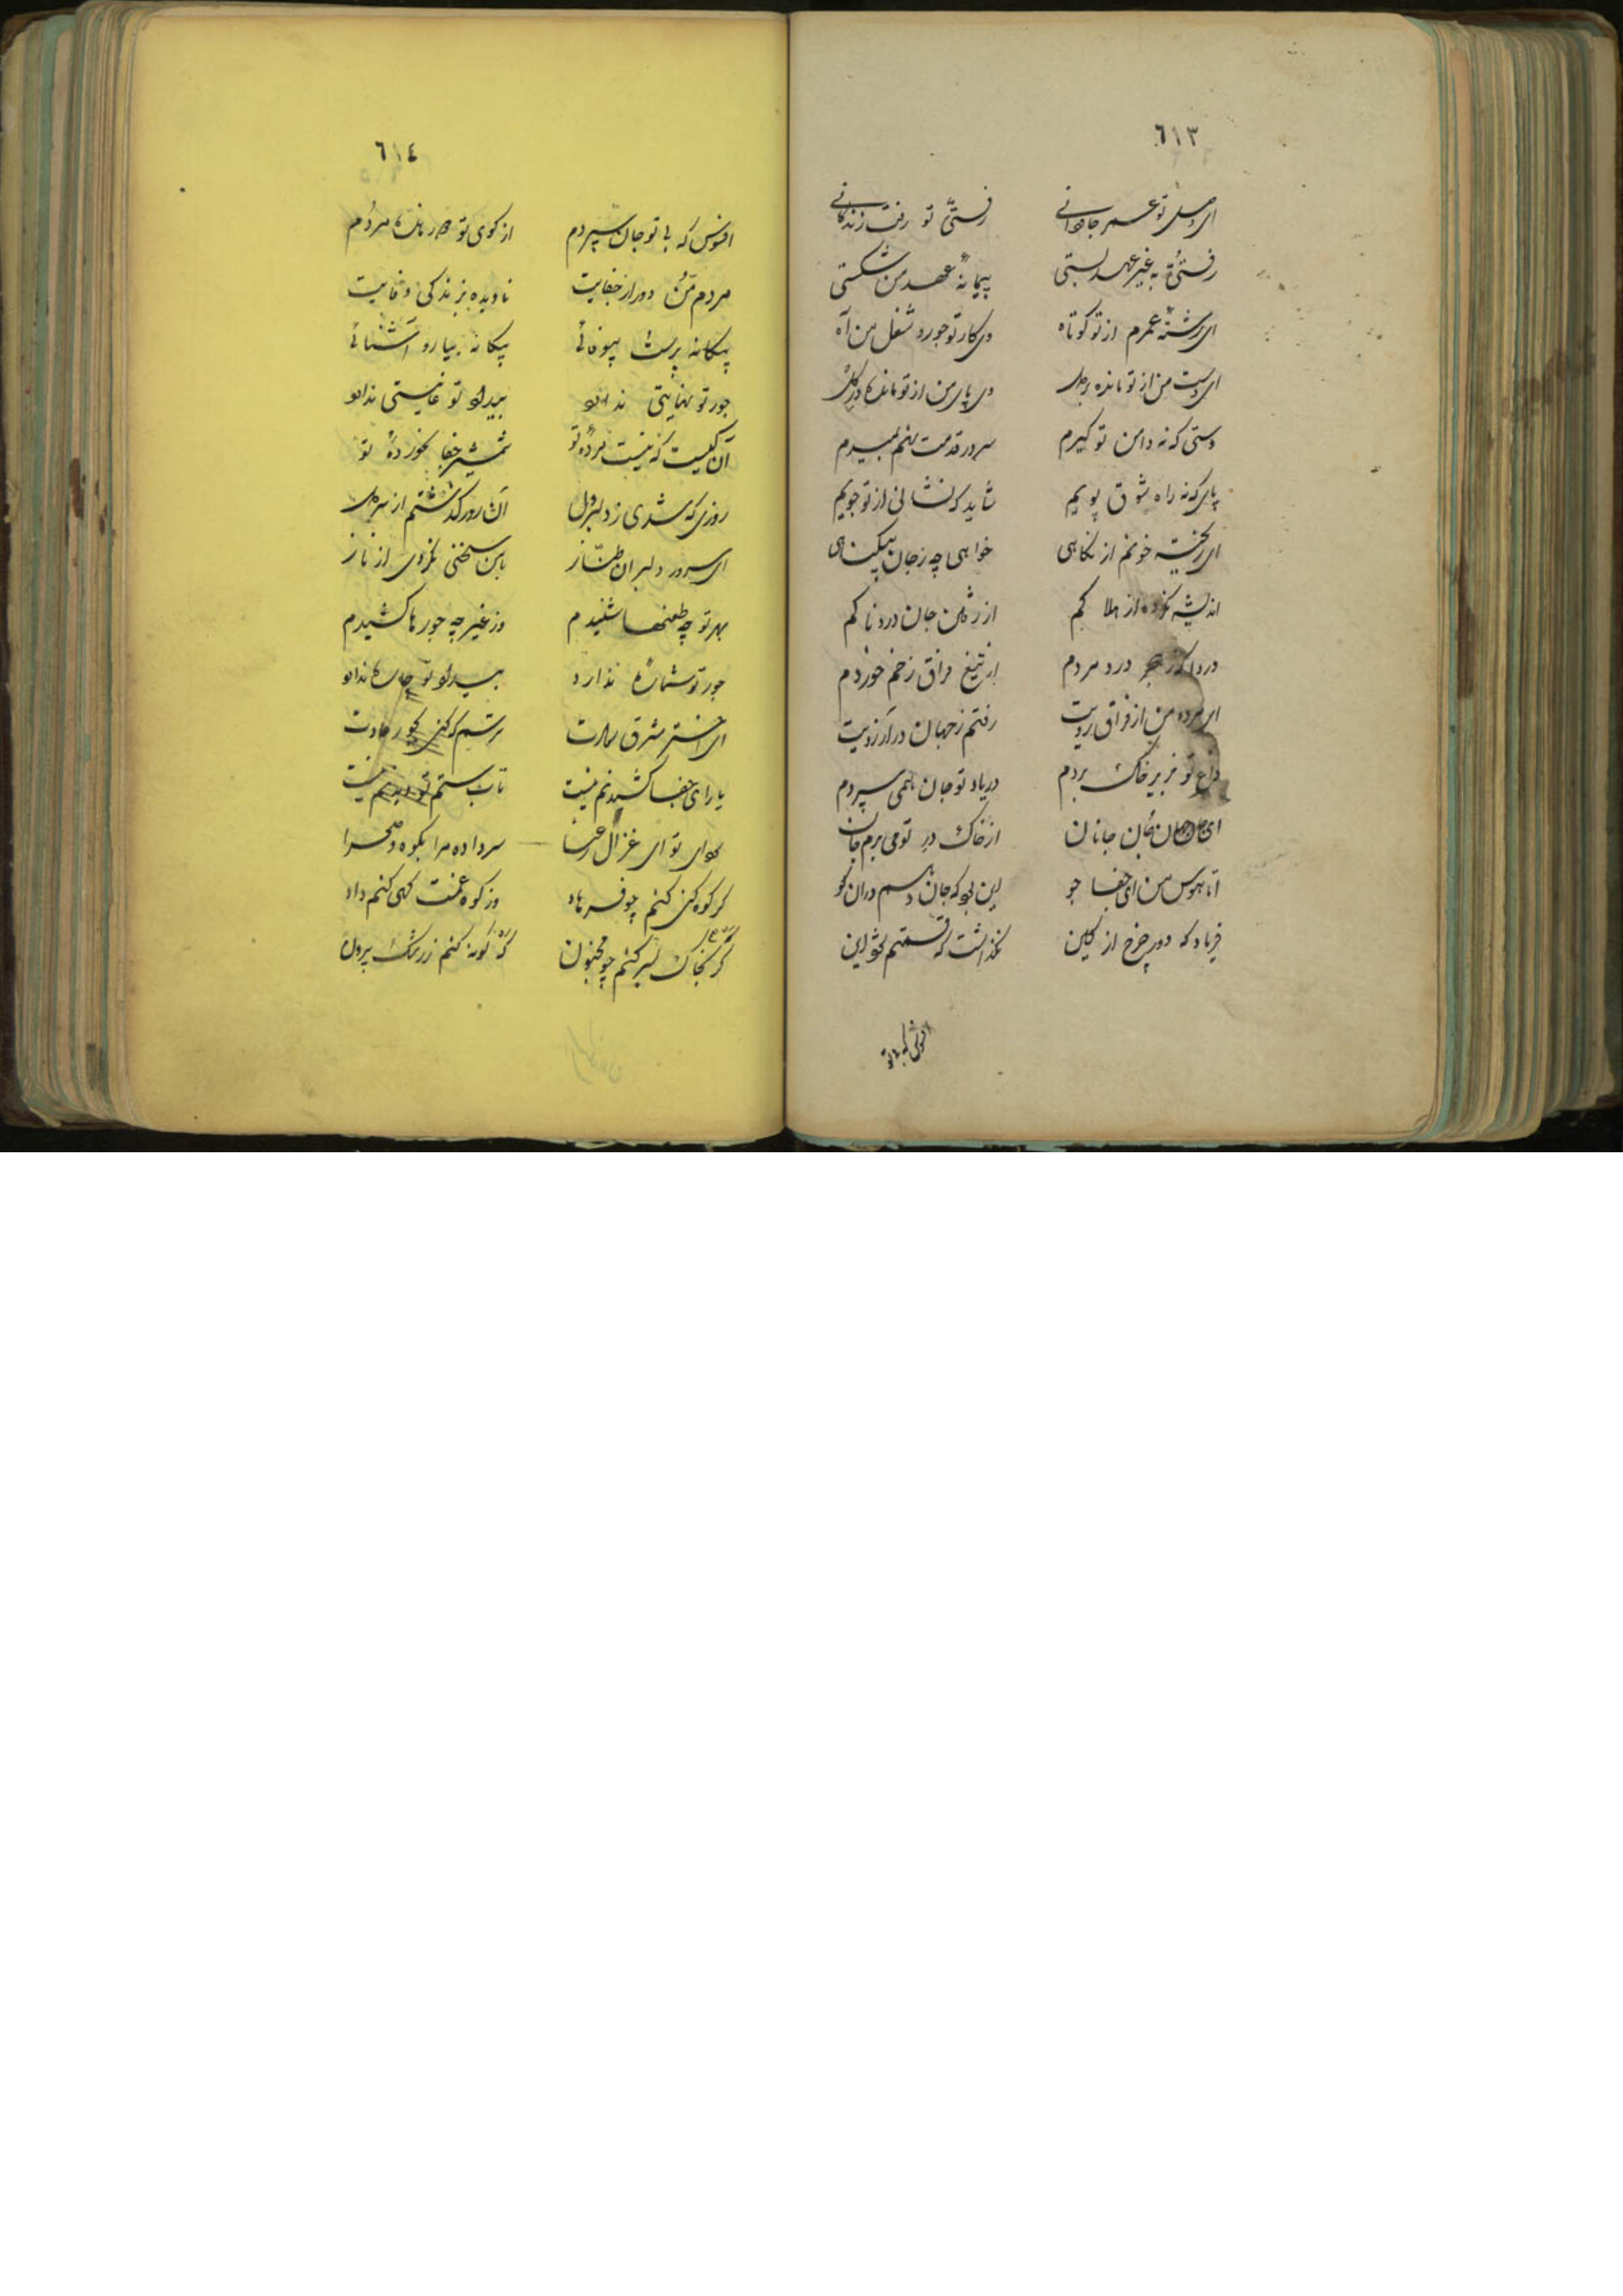 ٦١٣
ای وصل تو عمر جاودانی رفتی تو و رفت زندگانی
رفتی و به غیر عهد بستی پیمانه عهد من شکستی
ای رشته عمرم از تو کوتاه وی کار تو جور و شغل من آه
ای دست من از تو مانده بر دل وی پای من از تو مانده در گل
دستی که نه دامن تو گیرم سر در قدمت نهم بمیرم
پای که نه راه شوق پویم شاید که نشانی از تو جویم
ای ریخته خونم از نگاهی خواهی چه ز جان بیگناهی
اندیشه نکرده از هلاکم از رفتن جان دردناکم
دردا که ز هجر درد مردم از تیغ فراق زخم خوردم
ای مرده من از فراق رویت رفتم ز جهان در آرزویت
داغ تو بزیر خاک بردم در یاد تو جان همی سپردم
ای جان جهان جانان از خاک در تو می برم جان
اما هوس من ای جفا جو این بود که جان دهم در آن کو
فریاد که دور چرخ از کین نگذاشت که قسمتم شود این
افسوس که بی تو
٦١٤
افسوس که بی تو جان سپردم از کوی تو دور مانده مردم
مردم من و دور از جفایت نادیده بزندگی وفایت
بیگانه پرست بیوفائی بیگانه بیار و آشنائی
جور تو نهایتی ندارد بیداد تو غایتی ندارد
آن کیست که نیست مرده تو شمشیر جفا نخورده تو
روزی که شدی ز دلبری دل آن روز گذشتم از سر دل
ای سرور دلبران طناز با من سخنی نکردی از ناز
بهر تو چه طعنها شنیدم وز غیر چه جورها کشیدم
جور تو شماره ندارد بیداد تو چاره ندارد
ای اختر مشرق سعادت ترسم که کنی بجور عادت
یارای جفا کشیدنم نیست تاب ستم تو دیدنم نیست
سودای تو ای غزال رعنا سر داده مرا بکوه و صحرا
گر کوه کنی کنم چو فرهاد وز کوه غمت گهی کنم داد
گر خاک بسر کنم چو مجنون گه گونه کنم ز رشک